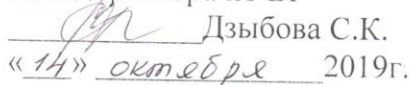 Дзыбова С.К.
«14» октября 2019г.